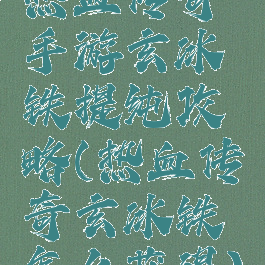 热血传奇
手游玄冰
铁提纯攻
略(热血传
奇玄冰铁
怎么获得)